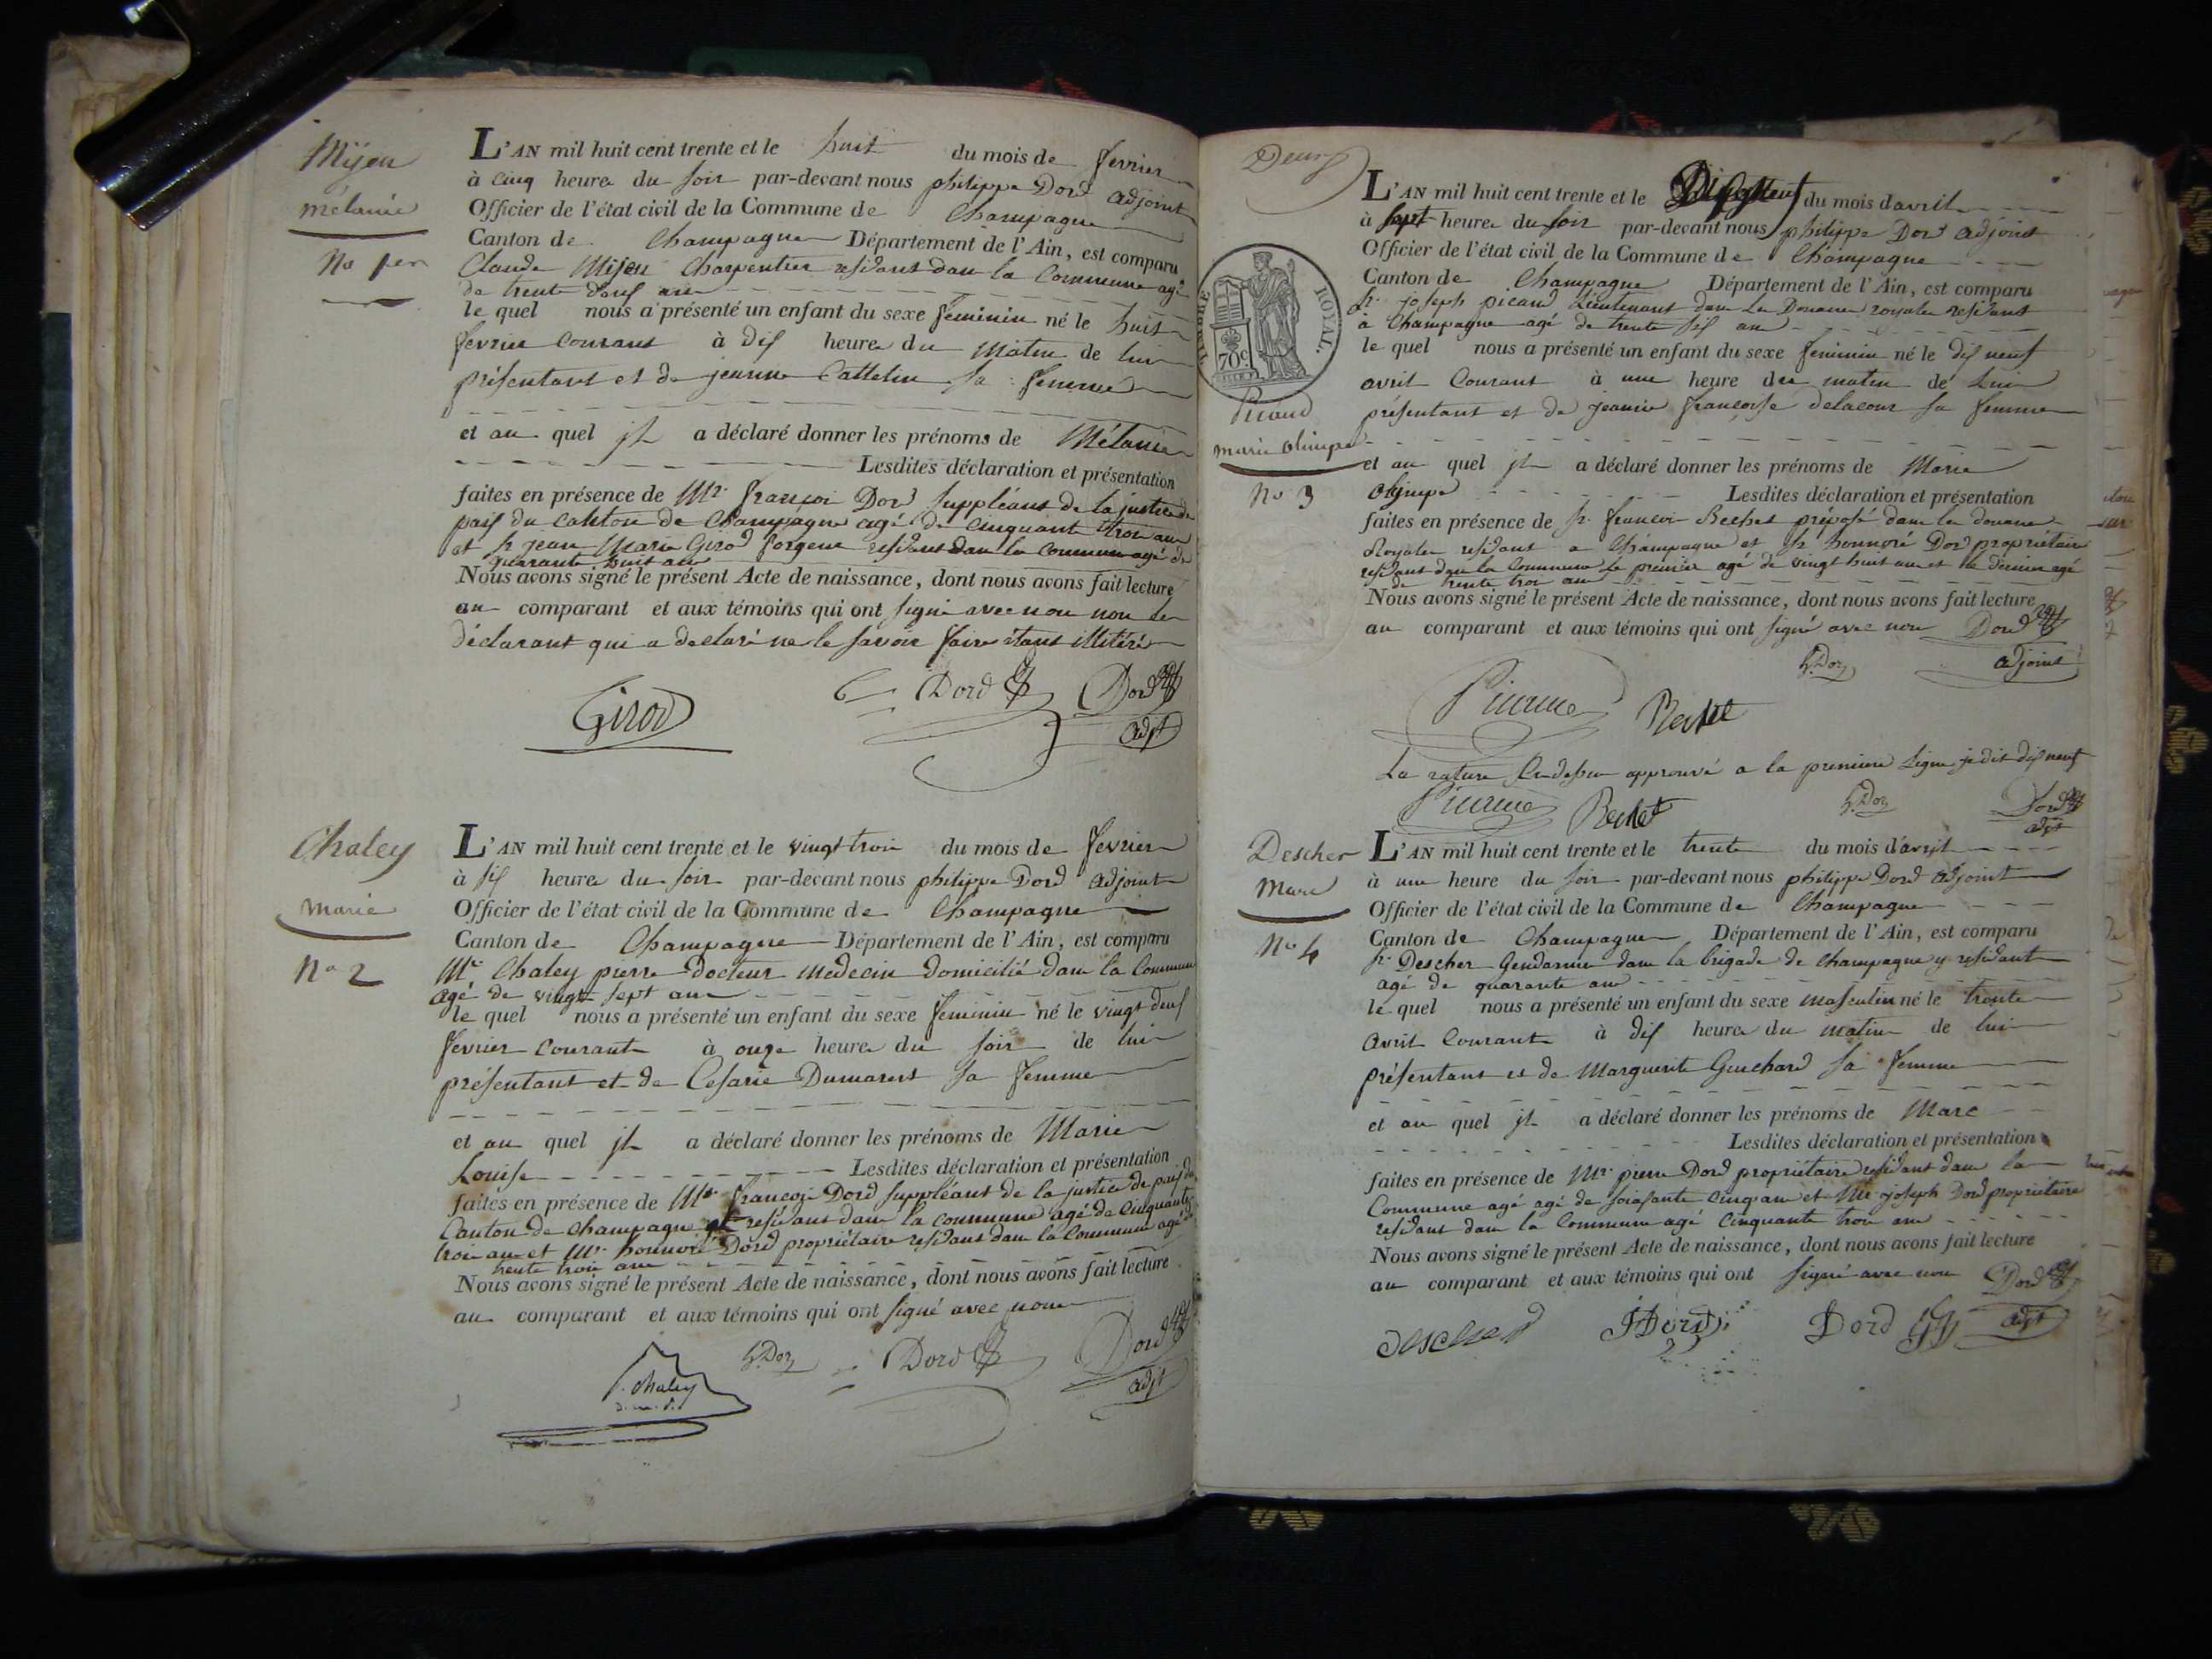 Mijou
mélanie
No 1er
L'AN mil huit cent trente et le huit du mois de fevrier
à cinq heure du soir par-devant nous philippe Dord adjoint
Officier de l'état civil de la Commune de Champagne
Canton de Champagne Département de l'Ain, est comparu
Claude Mijou Charpentier residant dans la Commune agé
de trente deux ans
le quel nous a présenté un enfant du sexe feminin né le huit
fevrier Courant à dix heure du Matin de lui
présentant et de jeanne Cattelin sa femme
et au quel il a déclaré donner les prénoms de Mélanie
Lesdites déclaration et présentation
faites en présence de Mr. françois Dord suppléant de la justice de
paix du canton de Champagne agé de cinquante trois ans
et sr jean Marie Girod forgeur residant dans la commune agé de
quarante huit ans
Nous avons signé le présent Acte de naissance, dont nous avons fait lecture
au comparant et aux témoins qui ont signé avec nous non le
déclarant qui a déclaré ne le savoir faire étant illitéré
Girod Dord Dord
adjt
Chaley
marie
No 2
L'AN mil huit cent trente et le vingt trois du mois de fevrier
à six heure du soir par-devant nous philippe Dord adjoint
Officier de l'état civil de la Commune de Champagne
Canton de Champagne Département de l'Ain, est comparu
Mr Chaley pierre Docteur Medecin domicilié dans la Commune
agé de vingt sept ans
le quel nous a présenté un enfant du sexe feminin né le vingt deux
fevrier courant à onze heure du soir de lui
présentant et de Cesarie Dumarest sa femme
et au quel il a déclaré donner les prénoms de Marie
Louise Lesdites déclaration et présentation
faites en présence de Mr. françois Dord suppléant de la justice de paix du
Canton de champagne residant dans la commune agé de cinquante
trois ans et Mr. honnoré Dord propriétaire residant dans la commune agé de
trente trois ans
Nous avons signé le présent Acte de naissance, dont nous avons fait lecture
au comparant et aux témoins qui ont signé avec nous
h. Dord Dord Dord
chaley
d. m. adjt
Deux
TIMBRE ROYAL.
70c
Picaud
marie olimpe
No 3
L'AN mil huit cent trente et le du mois d'avril
à sept heure du soir par-devant nous philippe Dord adjoint
Officier de l'état civil de la Commune de Champagne
Canton de Champagne Département de l'Ain, est comparu
sr. joseph picaud Lieutenant dans les Douanes royales residant
à Champagne agé de trente six ans
le quel nous a présenté un enfant du sexe feminin né le dix neuf
avril Courant à une heure du matin de lui
présentant et de jeanne françoise delacour sa femme
et au quel il a déclaré donner les prénoms de Marie
olimpe Lesdites déclaration et présentation
faites en présence de sr. françois Bechet préposé dans les douanes
Royales residant a Champagne et sr honnoré Dord propriétaire
residant dans la commune le premier agé de vingt huit ans et le dernier agé
de trente trois ans
Nous avons signé le présent Acte de naissance, dont nous avons fait lecture
au comparant et aux témoins qui ont signé avec nous Dord
h. Dord adjoint
Bechet
La rature ci dessus approuvé a la premiere ligne je dis dix neuf
Bechet h. Dord Dord
adjt
Descher
Marc
No 4
L'AN mil huit cent trente et le trente du mois d'avril
à une heure du soir par-devant nous philippe Dord adjoint
Officier de l'état civil de la Commune de Champagne
Canton de Champagne Département de l'Ain, est comparu
sr. Descher Gendarme dans la brigade de champagne y residant
agé de quarante ans
le quel nous a présenté un enfant du sexe masculin né le trente
avril Courant à dix heure du matin de lui
présentant et de Marguerite Guichard sa femme
et au quel il a déclaré donner les prénoms de Marc
Lesdites déclaration et présentation
faites en présence de Mr. pierre Dord propriétaire residant dans la
Commune agé agé de soixante cinq ans et Mr joseph Dord propriétaire
residant dans la Commune agé cinquante trois ans
Nous avons signé le présent Acte de naissance, dont nous avons fait lecture
au comparant et aux témoins qui ont signé avec nous Dord
descher Dord Dord adjt